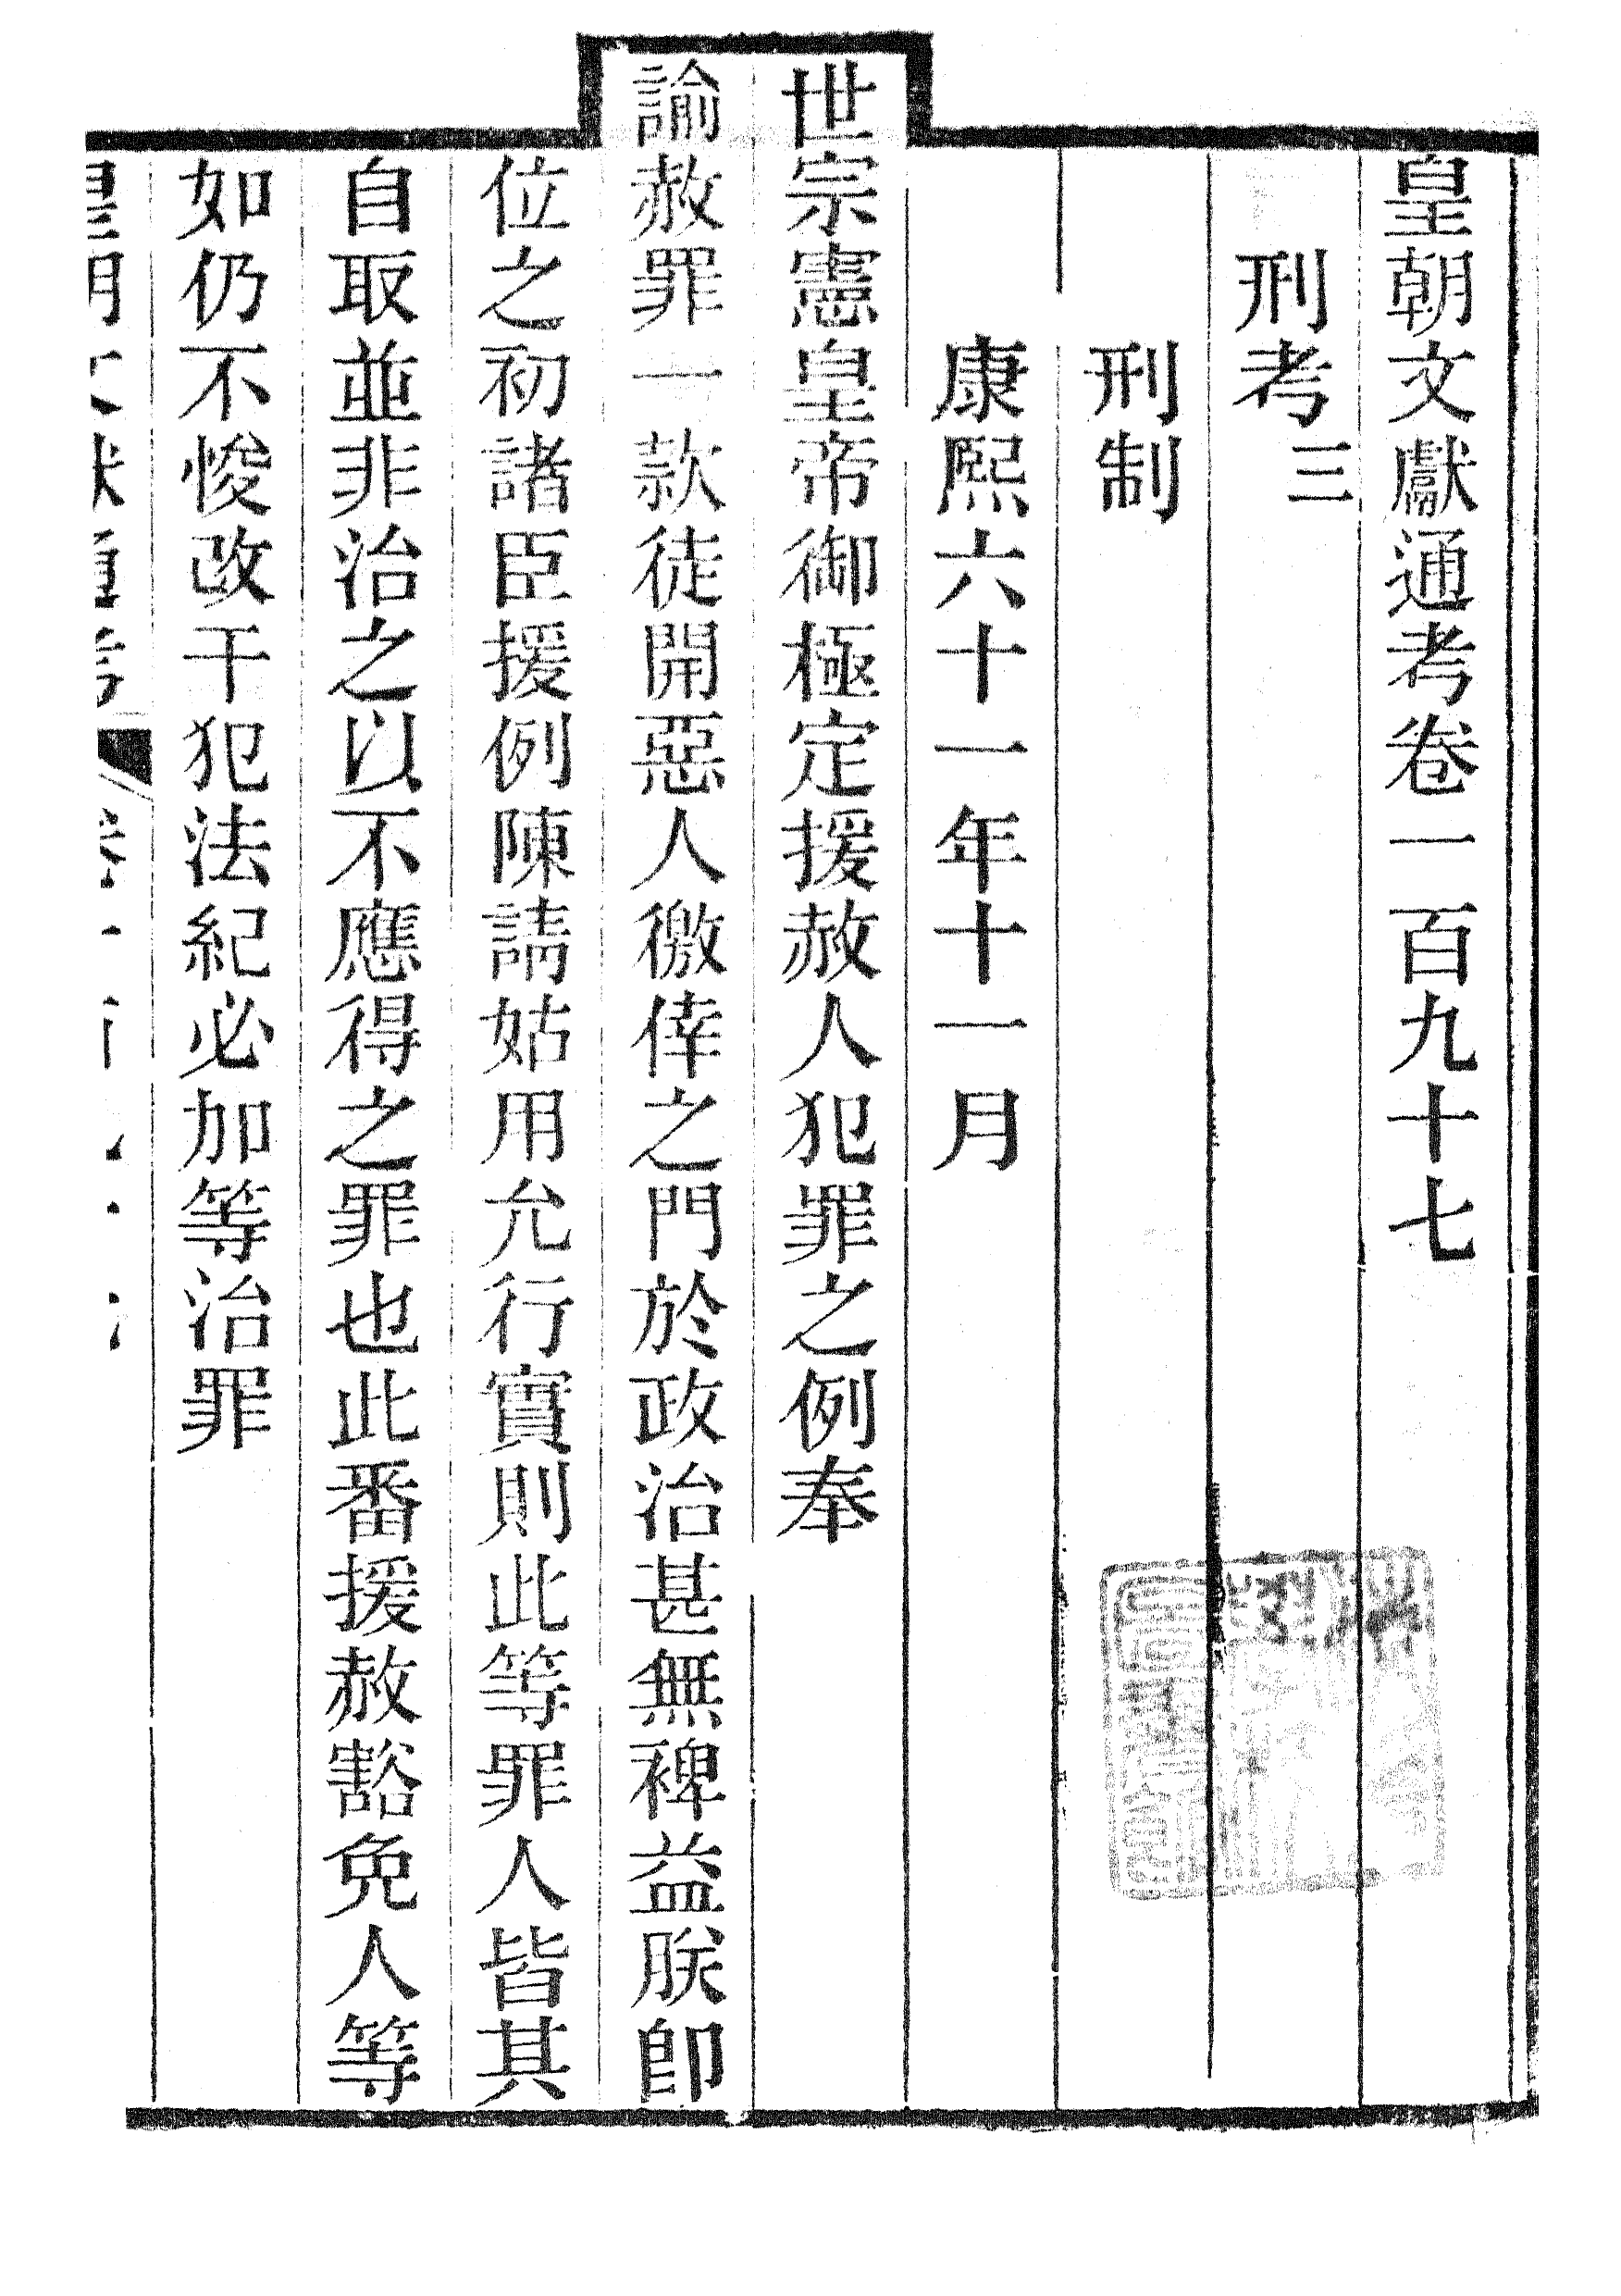 皇朝文獻通考卷一百九十七
刑考三
刑制
康熙六十一年十一月
世宗憲皇帝御極定援赦人犯罪之例奉
諭赦罪一款徒開惡人徼倖之門於政治甚無裨益朕卽
位之初諸臣援例陳請姑用允行實則此等罪人皆其
自取並非治之以不應得之罪也此番援赦豁免人等
如仍不悛改干犯法紀必加等治罪